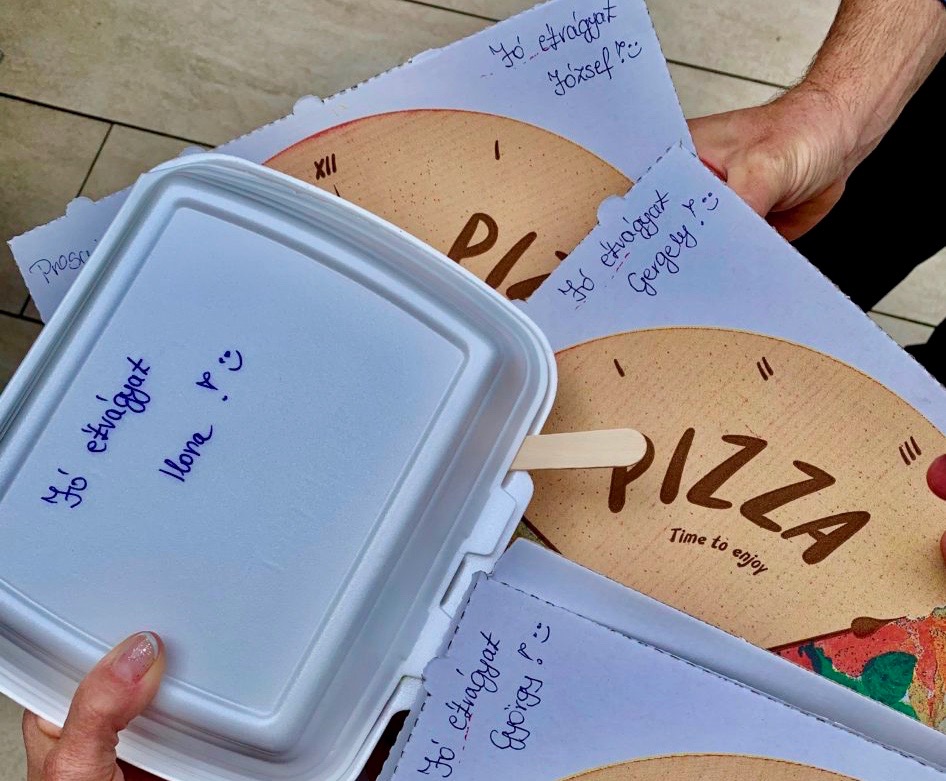 Jó étvágyat
József! :)
XII
I
PIZ
Prosci
Jó étvágyat
Gergely! :)
I
II
III
PIZZA
Time to enjoy
Jó étvágyat
Ilona! :)
Jó étvágyat
György! :)